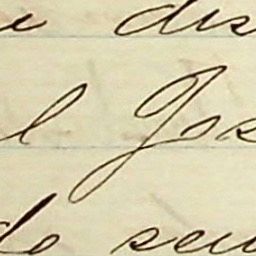 e dis
l Jos
do seu